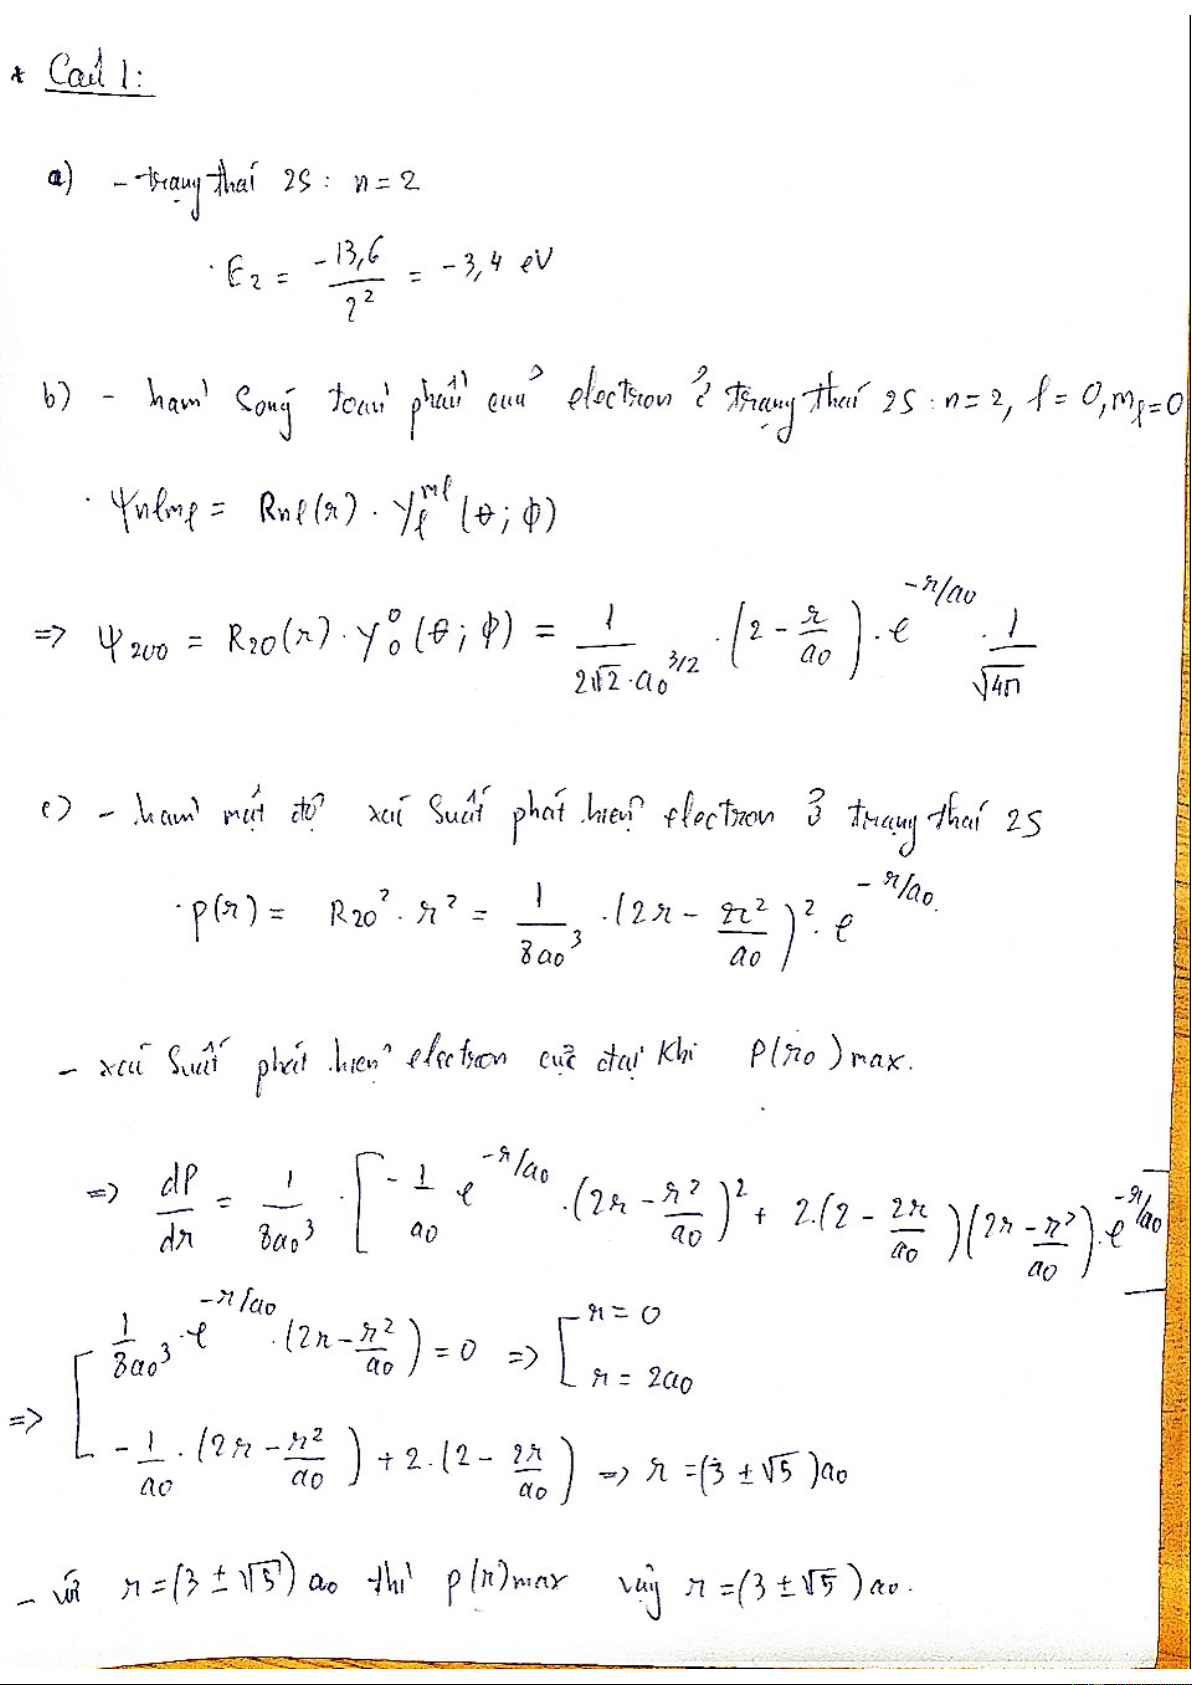 * Câu 1:
a) - trạng thái 2S: n = 2
· E₂ = -13,6 / 2² = -3,4 eV
b) - hàm sóng toàn phần của electron ở trạng thái 2S: n = 2, ℓ = 0, m_ℓ = 0
· Ψnℓm_ℓ = Rnℓ(r) · Y_ℓ^mℓ (θ; φ)
=> Ψ₂₀₀ = R₂₀(r) · Y₀⁰(θ; φ) = 1 / (2√2 · a₀^3/2) · (2 - r/a₀) · e^-r/a₀ · 1/√4π
c) - hàm mật độ xác suất phát hiện electron ở trạng thái 2S
· p(r) = R₂₀² · r² = 1/(8a₀³) · (2r - r²/a₀)² · e^-r/a₀.
- xác suất phát hiện electron cực đại khi P(r₀)max.
=> dP/dr = 1/(8a₀³) · [ -1/a₀ e^-r/a₀ · (2r - r²/a₀)² + 2.(2 - 2r/a₀)(2r - r²/a₀) · e^-r/a₀ ]
=> [ 1/(8a₀³) · e^-r/a₀ · (2r - r²/a₀) = 0 => [ r = 0
r = 2a₀
-1/a₀ · (2r - r²/a₀) + 2.(2 - 2r/a₀) => r = (3 ± √5)a₀
- với r = (3 ± √5) a₀ thì p(r)max vậy r = (3 ± √5) a₀.